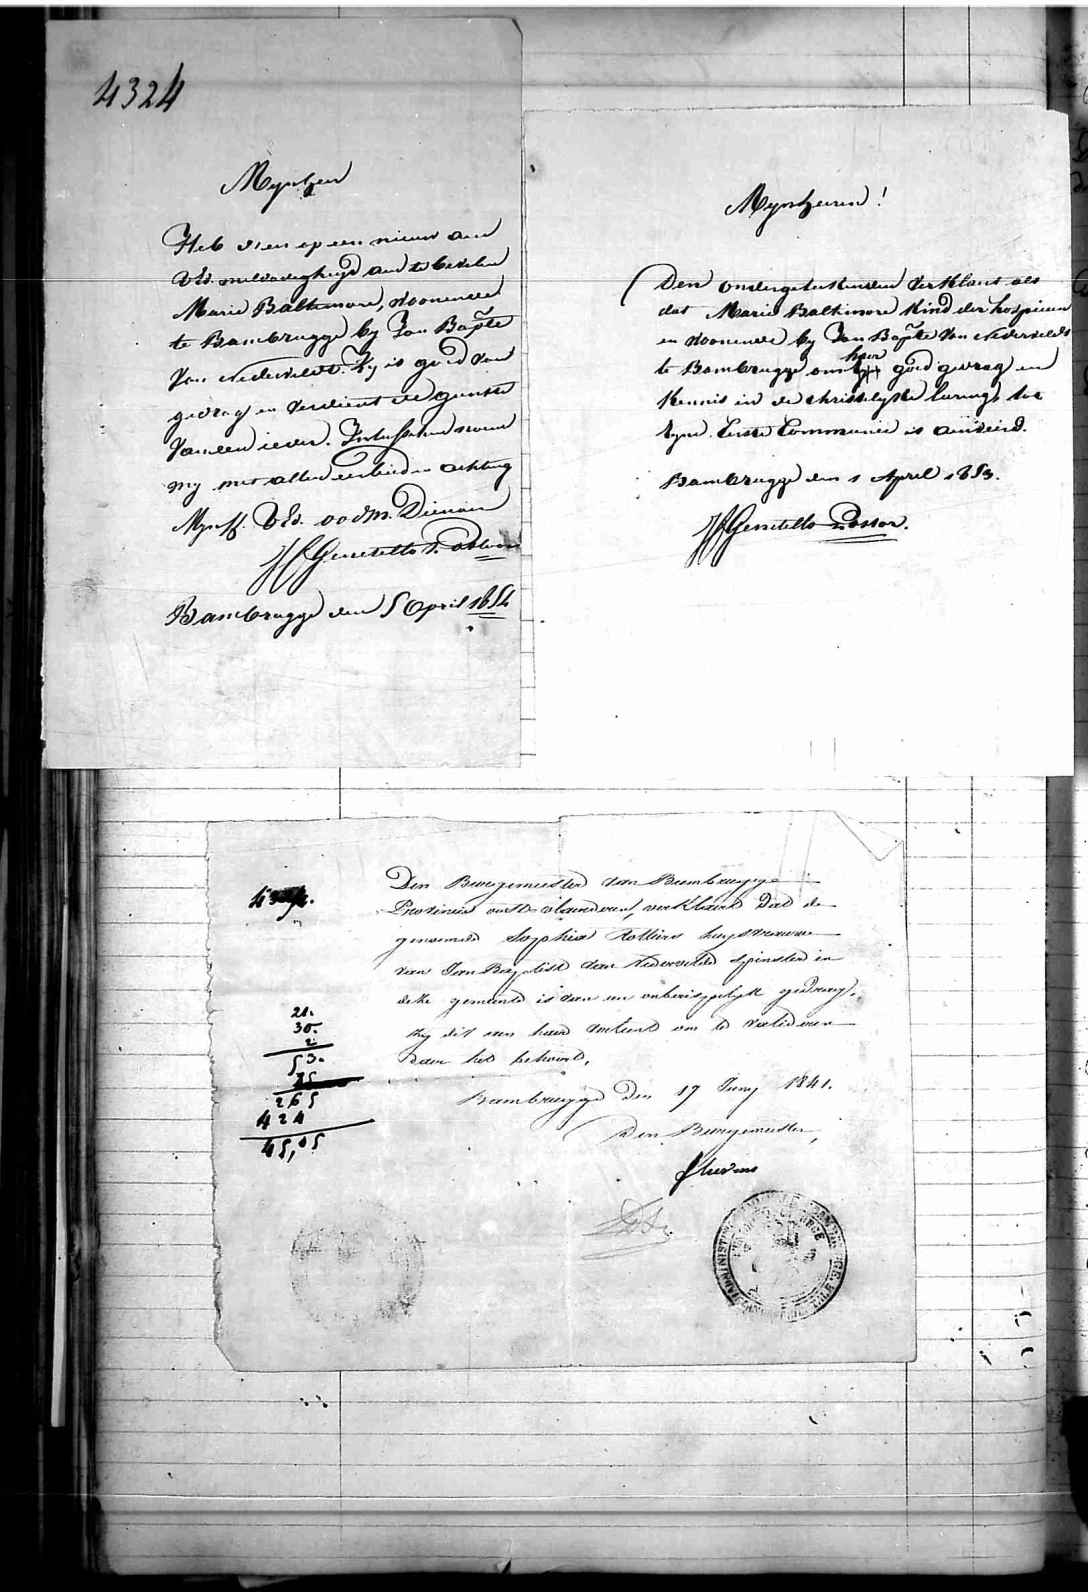 4324
Mynheer
Heb d'eer op een nieuw aen
UEd. meldadigheyd aen te bevelen
Marie Baltimore, woonende
te Bambrugge by Jan Bap̃te
Van Nederveldt. Zy is goed van
gedrag en verdient de gunste
van een ieder.
my met allen eerbied en achting
Mynh. UEd. oodm. Dienaer
Bambrugge den 5 April 1854
Mynheeren!
Den ondergeteekenden verklaert als
dat Marie Baltimore kind der hospicien
en woonende by Jan Bap̃te Van Nederveldt
te Bambrugge om haer goed gedrag en
kennis in de christelyke leering, tot
syne Eerste Communie is aenveird.
Bambrugge den 1 April 1853.
Pastor.
Den Burgemeester van Bambrugge
Provincie oost vlaenderen, verklaert dat de
genoemde Sophia huysvrouwe
van Jan Baptist van Nedervelde spinster in
deze gemeente is van een onberispelyk gedrag.
Zy dit aen haer verleent om te valideren
daer het behoord.
Bambrugge Den 17 Juny 1841.
Den Burgemeester,
21.
30.
2
53.
85
265
424
45,05